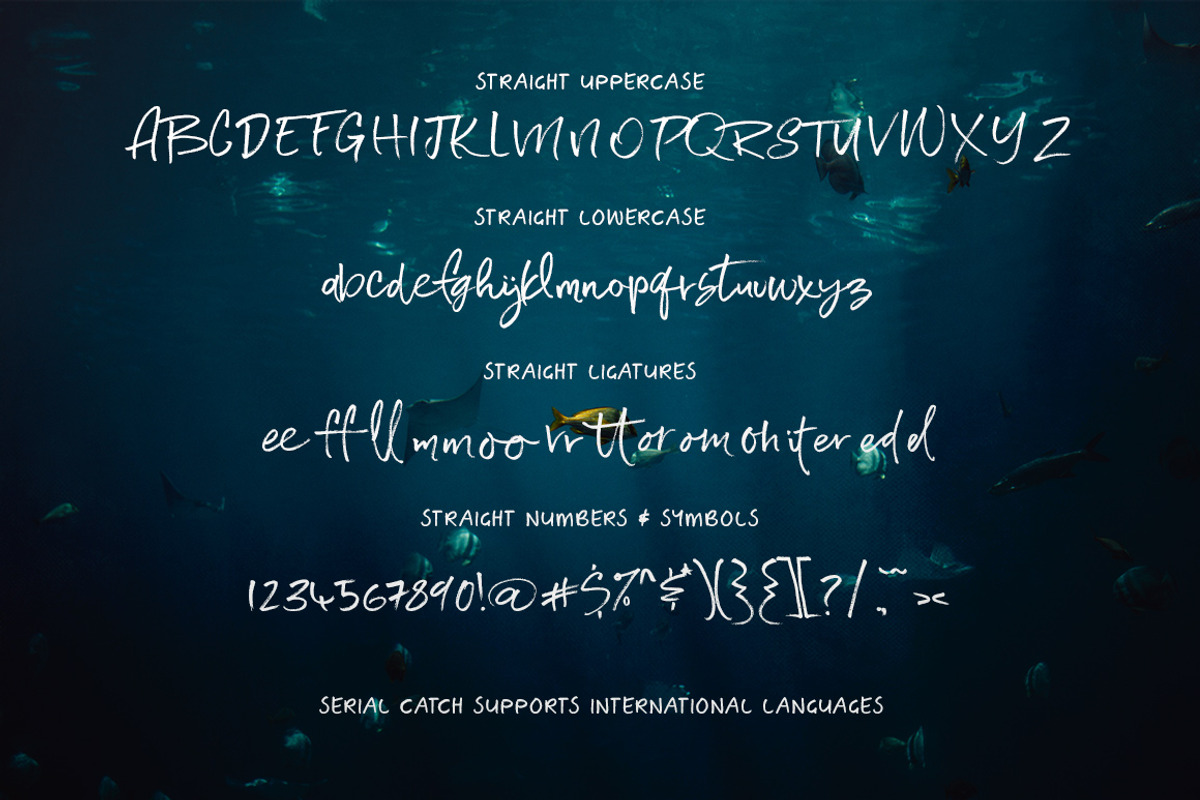 STRAIGHT UPPERCASE
ABCDEFGHIJKLMNOPQRSTUVWXYZ
STRAIGHT LOWERCASE
abcdefghijklmnopqrstuvwxyz
STRAIGHT LIGATURES
ee ff ll mm oo rr tt or om oh it er ed d
STRAIGHT NUMBERS & SYMBOLS
1234567890!@#$%^&*)(}{][?/.,~><
SERIAL CATCH SUPPORTS INTERNATIONAL LANGUAGES